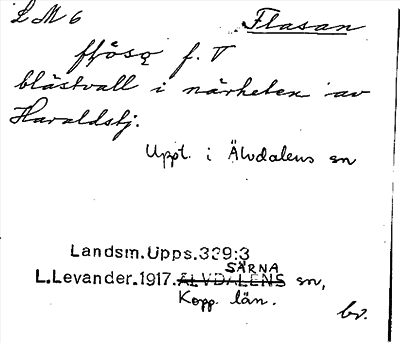 L M 6 Flasan
f. V
blästvall i närheten av
Haraldstj.
Uppt. i Älvdalens sn
Landsm.Upps.339:3
L.Levander.1917. ÄLVDALENS SÄRNA sn,
Kopp. län.
bv.